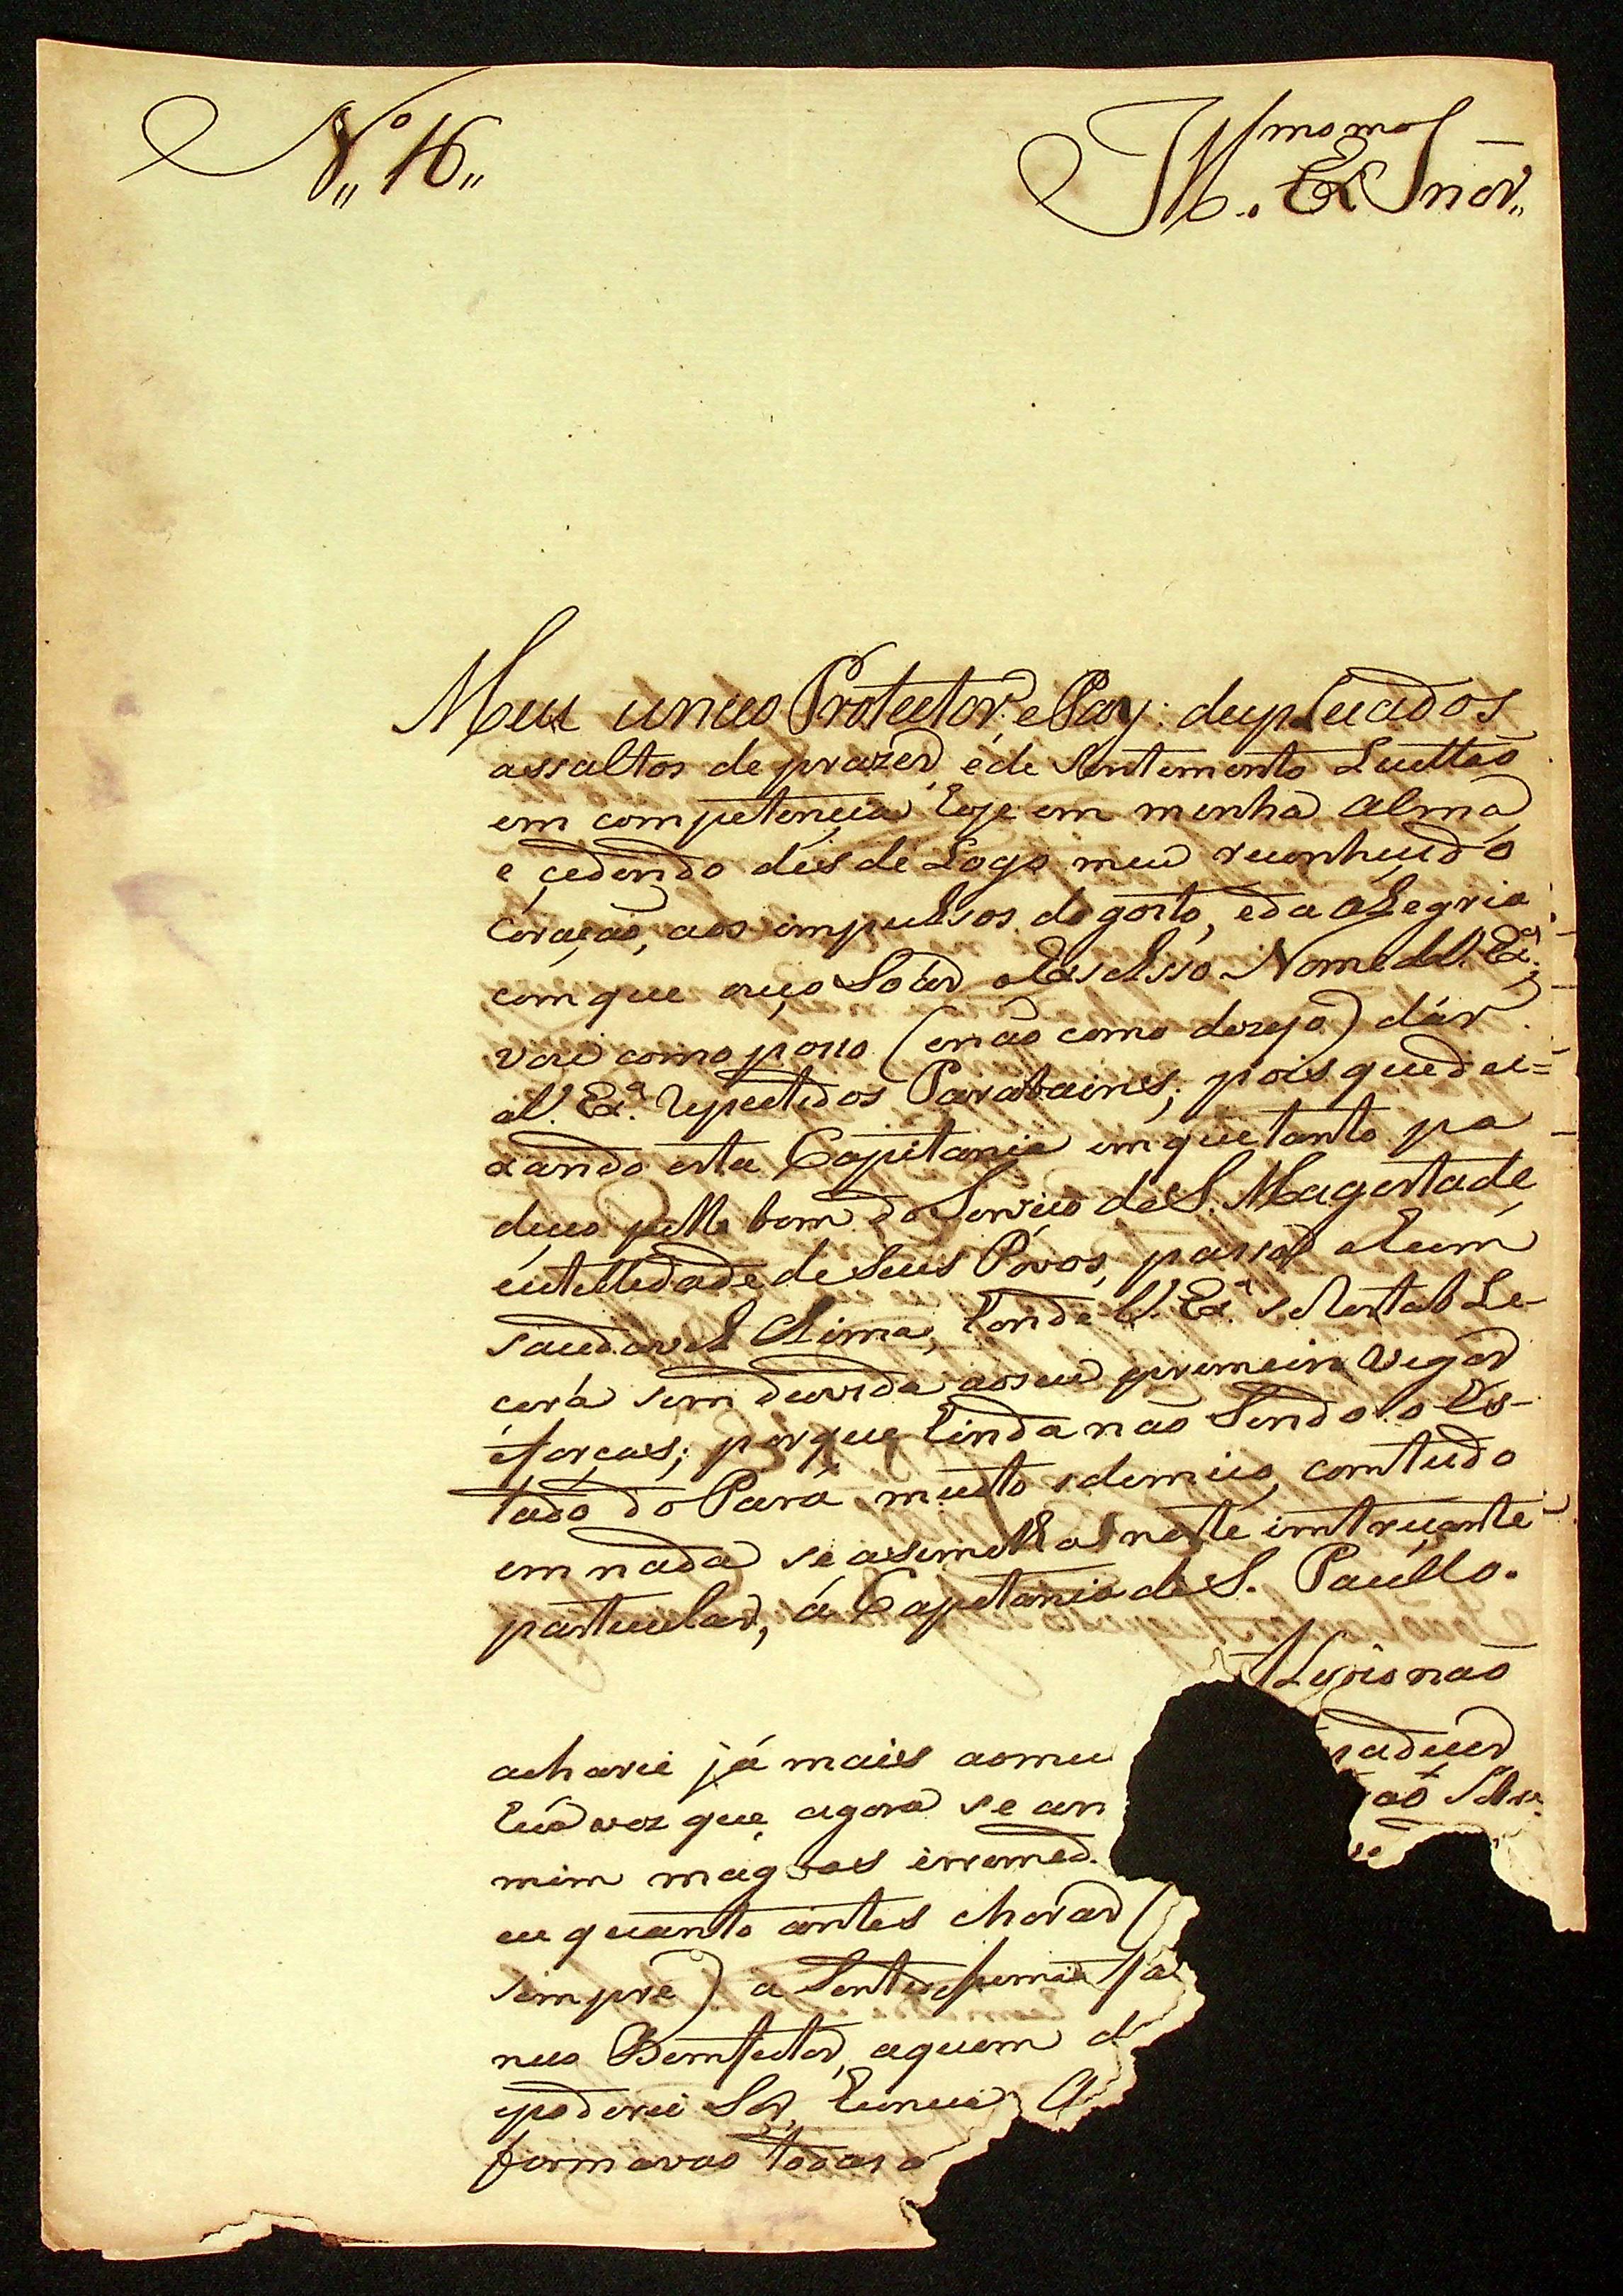 N.º 16„
Ill.mo Ex.mo Snor„
Meu unico Protector, e Pay: duplicados
assaltos de prazer, e de sentimento Luttão
em competencia hoje em minha alma,
e cedendo des de Logo meu reconhecido
coração, aos impulsos do gosto, e da alegria
com que ouço Soar o excelso Nome de V. Ex.ª,
vou como posso (e não como dezejo) dár
a V. Ex.ª repetidos Parabains; pois que dei=
xando esta Capitania em que tanto pa
deceo pello bem do Serviço de S. Magestade,
e utellidade de Seus Povos, passa a hum
saudavel Clima, honde V. Ex.ª se Restable-
cerá sem duvida ao seu premeiro vigor
e forças; porque hinda não Sendo o Es-
tado do Pará muito edemico, comtudo
em nada se asemelha neste imtrigante
particular, á Capitania de S. Paullo.
Alivio não
acharei já mais ao meu
hũa vez que agora se an
mim magoas irremed
eu quanto antes chorar (
sempre) a Sentidissima fa
nico Bemfeitor, a quem d
poderei Ser, hunica
formavão todas a